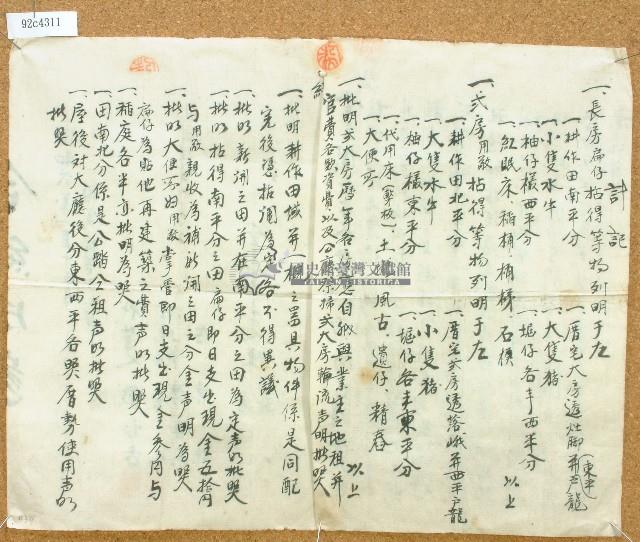 92c4311
計記
一、長房扁仔拈得等物列明于左
一、耕作田南平分
一、厝宅大房透灶脚并戶龍(東平)
一、小隻水牛
一、大隻豬
一、柚仔樣西平分
一、堀仔各半西平分
一、紅眠床、稻桶、桶梯、石磧 以上
一、弍房用敢拈得等物列明于左
一、耕作田北平分
一、厝宅弍房透落 并西平戶龍
一、大隻水牛
一、小隻豬
一、柚仔樣東平分
一、堀仔各半東平分
一、代用床(藔板)、土 風古、 仔、精舂
一、大便所 以上
一、批明弍大房歷年各 自納與業主之地租并
官費各 費以及公 弍大房輪流声明批照
一、批明耕作田城并一 之器具物件係是同配
完後憑拈鬮為定各不得異議
一、批明新開之田并在南平分之田為定声明批照
一、批明拈得南平分之田扁仔即日支出現金五拾円
与用敢親收為補新開田之分金声明為照
一、批明大便所用敢掌管即日支出現金參円与
扁仔為貼他再建築之費声明批照
一、稻庭各半亦批明為照
一、田南北分係是公踏仝租声明批照
一、屋後討大廳後分東西平各照厝勢使用声明
批照
國史館臺灣文獻館